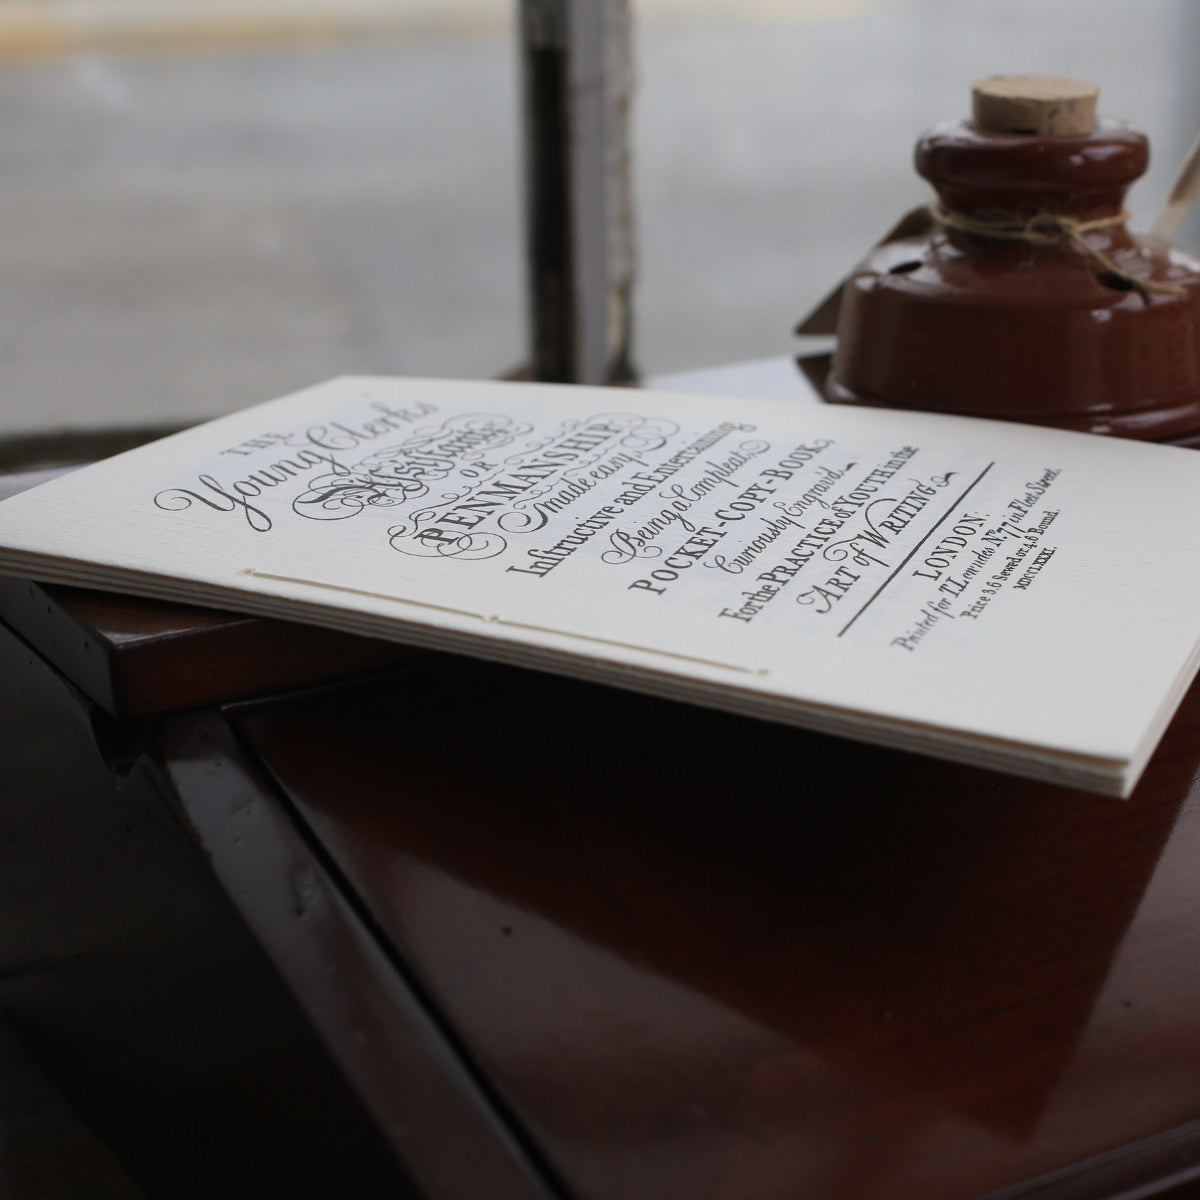 THE
Young Clerks
Assistant
OR
PENMANSHIP
made easy,
Inſtructive and Entertaining
Being a Compleat
POCKET-COPY-BOOK,
Curiously Engrav'd
For the PRACTICE of YOUTH in the
ART of WRITING.
LONDON:
Printed for T. Lowndes No. 77 in Fleet Street.
Price 3.6 Sewed or 4.6 Bound.
MDCCLXXXI.